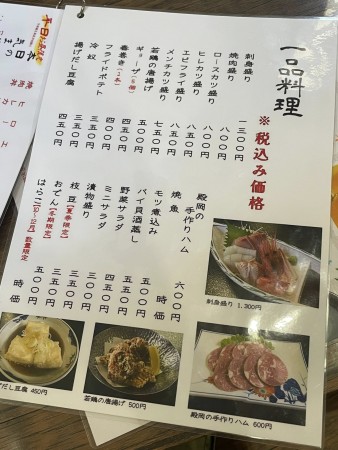 一品料理
※税込み価格
刺身盛り 一三〇〇円
焼肉盛り 八〇〇円
ロースカツ盛り 八〇〇円
ヒレカツ盛り
エビフライ盛り 八五〇円
メンチカツ盛り
若鶏の唐揚げ 五〇〇円
ギョーザ(6個)
春巻き(2本)
フライドポテト
冷奴
揚げだし豆腐 四五〇円
殿岡の手作りハム 六〇〇円
焼魚 時価
モツ煮込み 五〇〇円
バイ貝酒蒸し 五五〇円
野菜サラダ
ミニサラダ 三五〇円
漬物盛り 三五〇円
枝豆【夏季限定】 三五〇円
おでん【冬期限定】 五〇〇円
はらこ【10〜12月】数量限定 時価
刺身盛り 1,300円
だし豆腐 450円
若鶏の唐揚げ 500円
殿岡の手作りハム 600円